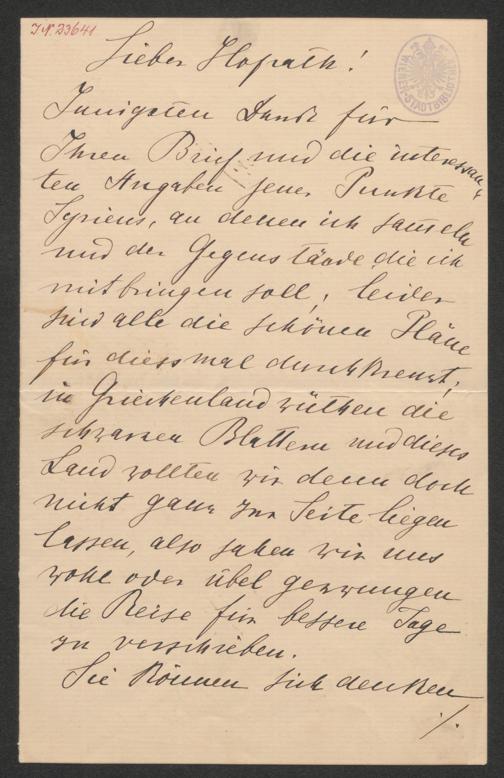 J.N. 33641
WIENER STADTBIBLIOTHEK
Lieber Hofrath!
Innigsten Dank für
Ihren Brief und die interessan-
ten Angaben jener Punkte
Syriens, an denen ich sam̅eln
und der Gegenstände, die ich
mitbringen soll; leider
sind alle die schönen Pläne
für diessmal durchkreuzt;
in Griechenland wüthen die
schwarzen Blattern und dieses
Land wollten wir denn doch
nicht ganz zur Seite liegen
lassen, also sahen wir uns
wohl oder übel gezwungen
die Reise für bessere Tage
zu verschieben.
Sie können sich denken
./.